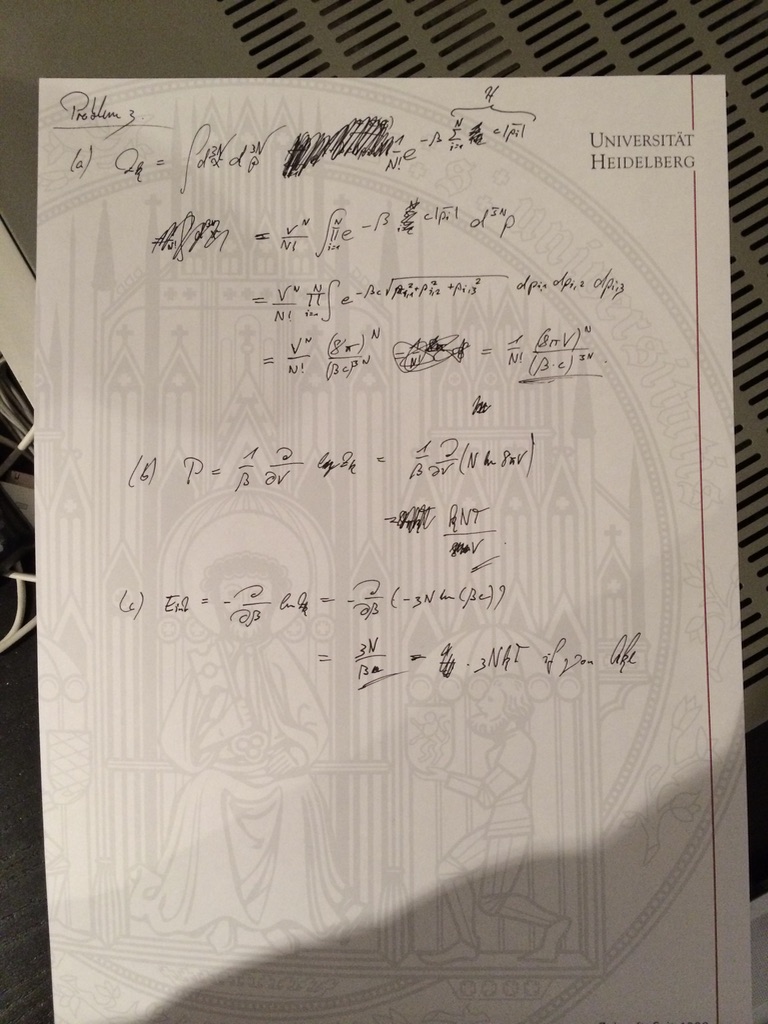 Problem 3.
UNIVERSITÄT
HEIDELBERG
(a) Q_k = ∫ d^{3N}x d^{3N}p 1/N! e^{-β Σ_{i=1}^{N} c|p_i|} H
= V^N/N! ∫ ∏_{i=1}^{N} e^{-β c|p_i|} d^{3N}p
= V^N/N! ∏_{i=1}^{N} ∫ e^{-βc √(p_{i,1}^2 + p_{i,2}^2 + p_{i,3}^2)} dp_{i,1} dp_{i,2} dp_{i,3}
= V^N/N! (8π)^N/(βc)^{3N} = 1/N! (8πV)^N/(β·c)^{3N}
(b) P = 1/β ∂/∂V log Q_k = 1/β ∂/∂V (N ln 8πV)
= kNT/V
(c) E_int = -∂/∂β ln Q_k = -∂/∂β (-3N ln(βc))
= 3N/β = 3NkT if you like